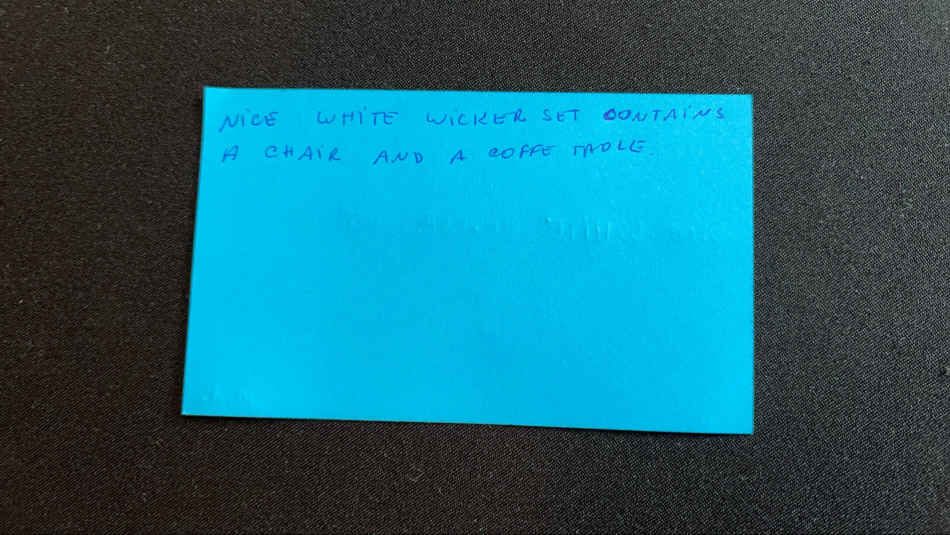 NICE WHITE WICKER SET CONTAINS
A CHAIR AND A COFFE TABLE.